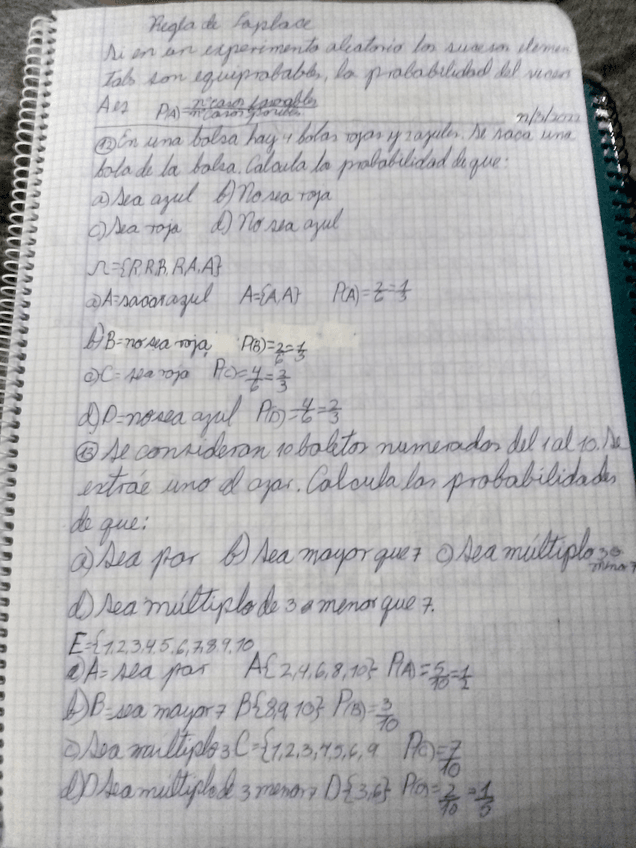 Regla de Laplace
Si en un experimento aleatorio los sucesos elemen
tales son equiprobables, la probabilidad del suceso
A es P(A)=nº casos favorables/nº casos posibles
⑫ En una bolsa hay 4 bolas rojas y 2 azules. Se saca una
bola de la bolsa. Calcula la probabilidad de que:
a) Sea azul b) No sea roja
c) Sea roja d) No sea azul
Ω={R,R,R,R,A,A}
a) A=sacar azul A={A,A} P(A)=2/6=1/3
b) B=no sea roja P(B)=2/6=1/3
c) C=sea roja P(C)=4/6=2/3
d) D=no sea azul P(D)=4/6=2/3
⑬ Se consideran 10 boletos numerados del 1 al 10. Se
extrae uno al azar. Calcula las probabilidades
de que:
a) Sea par b) Sea mayor que 7 c) Sea múltiplo 3 o
menor 7
d) Sea múltiplo de 3 a menor que 7.
E={1,2,3,4,5,6,7,8,9,10
a) A=sea par A{2,4,6,8,10} P(A)=5/10=1/2
b) B=sea mayor 7 B{8,9,10} P(B)=3/10
c) Sea multiplo 3 C={1,2,3,4,5,6,9 P(C)=7/10
d) D Sea múltiplo de 3 menor 7 D{3,6} P(D)=2/10=1/5